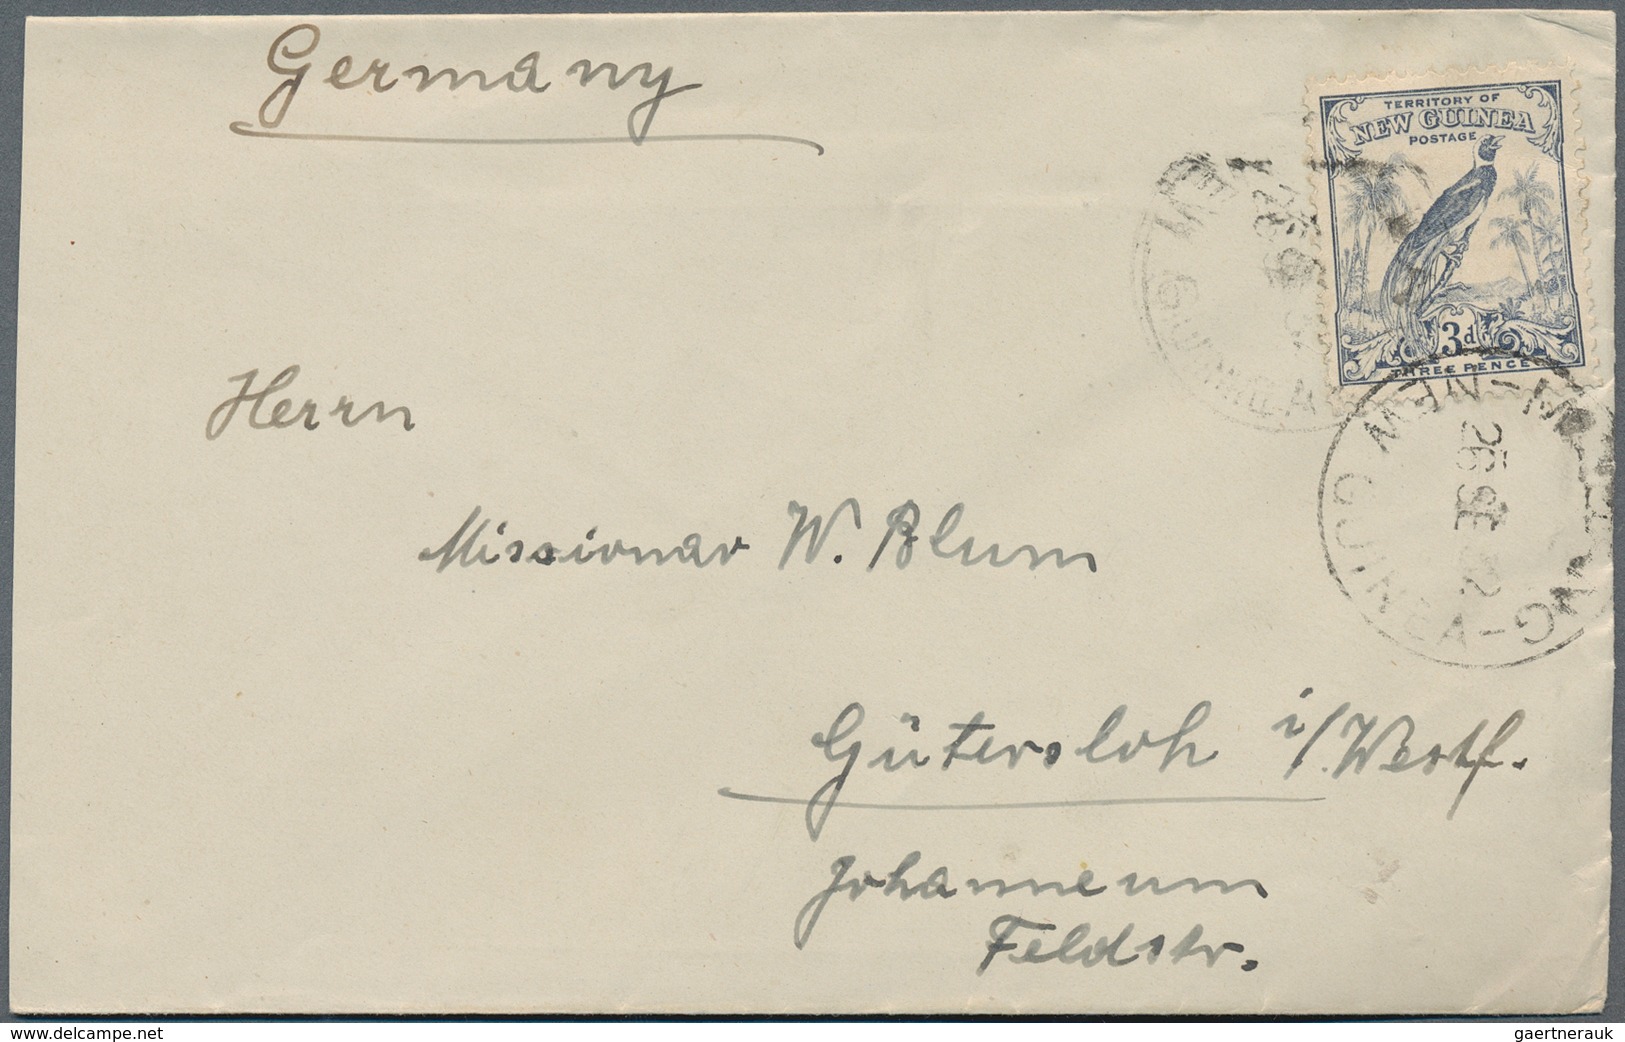 Germany
TERRITORY OF
NEW GUINEA
POSTAGE
3d
THREE PENCE
NEW GUINEA
26 SE
Herrn
Missionar W. Blum
Gütersloh i/Westf.
Johanneum
Feldstr.
www.delcampe.net
gaertnerauk